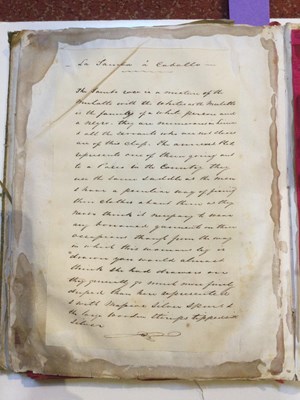 La Samba à Caballo
The Samba race is a mixture of the
Mulatto with the White; the Mulatto
is the family of a white person and
a Negro. they are numerous here
& all the servants who are not slaves
are of this class. The annexed Plate
represents one of them going out
to a race in the Country they
use the same saddle as the men
& have a peculiar way of fixing
their clothes about them as they
never think it necessary to wear
any borrowed garment on these
occasions though from the way
in which this woman's leg is
drawn you would almost
think she had drawers on
they generally go much more finely
dressed than here represented
& with Massive Silver Spurs &
the large Wooden Stirrups tipped with
Silver